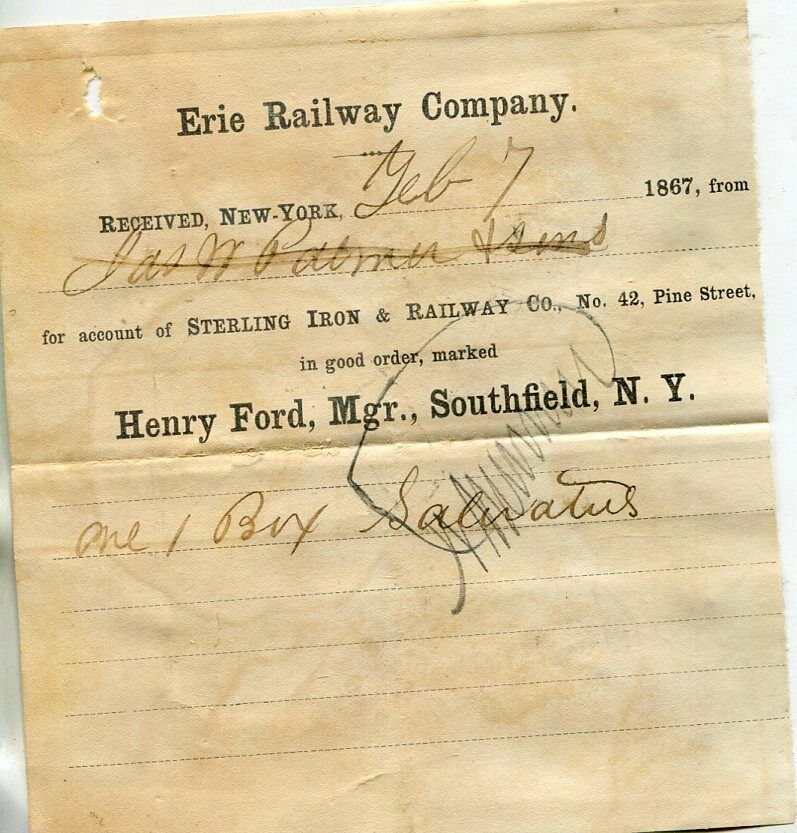 Erie Railway Company.
RECEIVED, NEW-YORK, Feb 7 1867, from
Jas W Palmer & sons
for account of STERLING IRON & RAILWAY CO., No. 42, Pine Street,
in good order, marked
Henry Ford, Mgr., Southfield, N. Y.
one 1 Box Saleratus